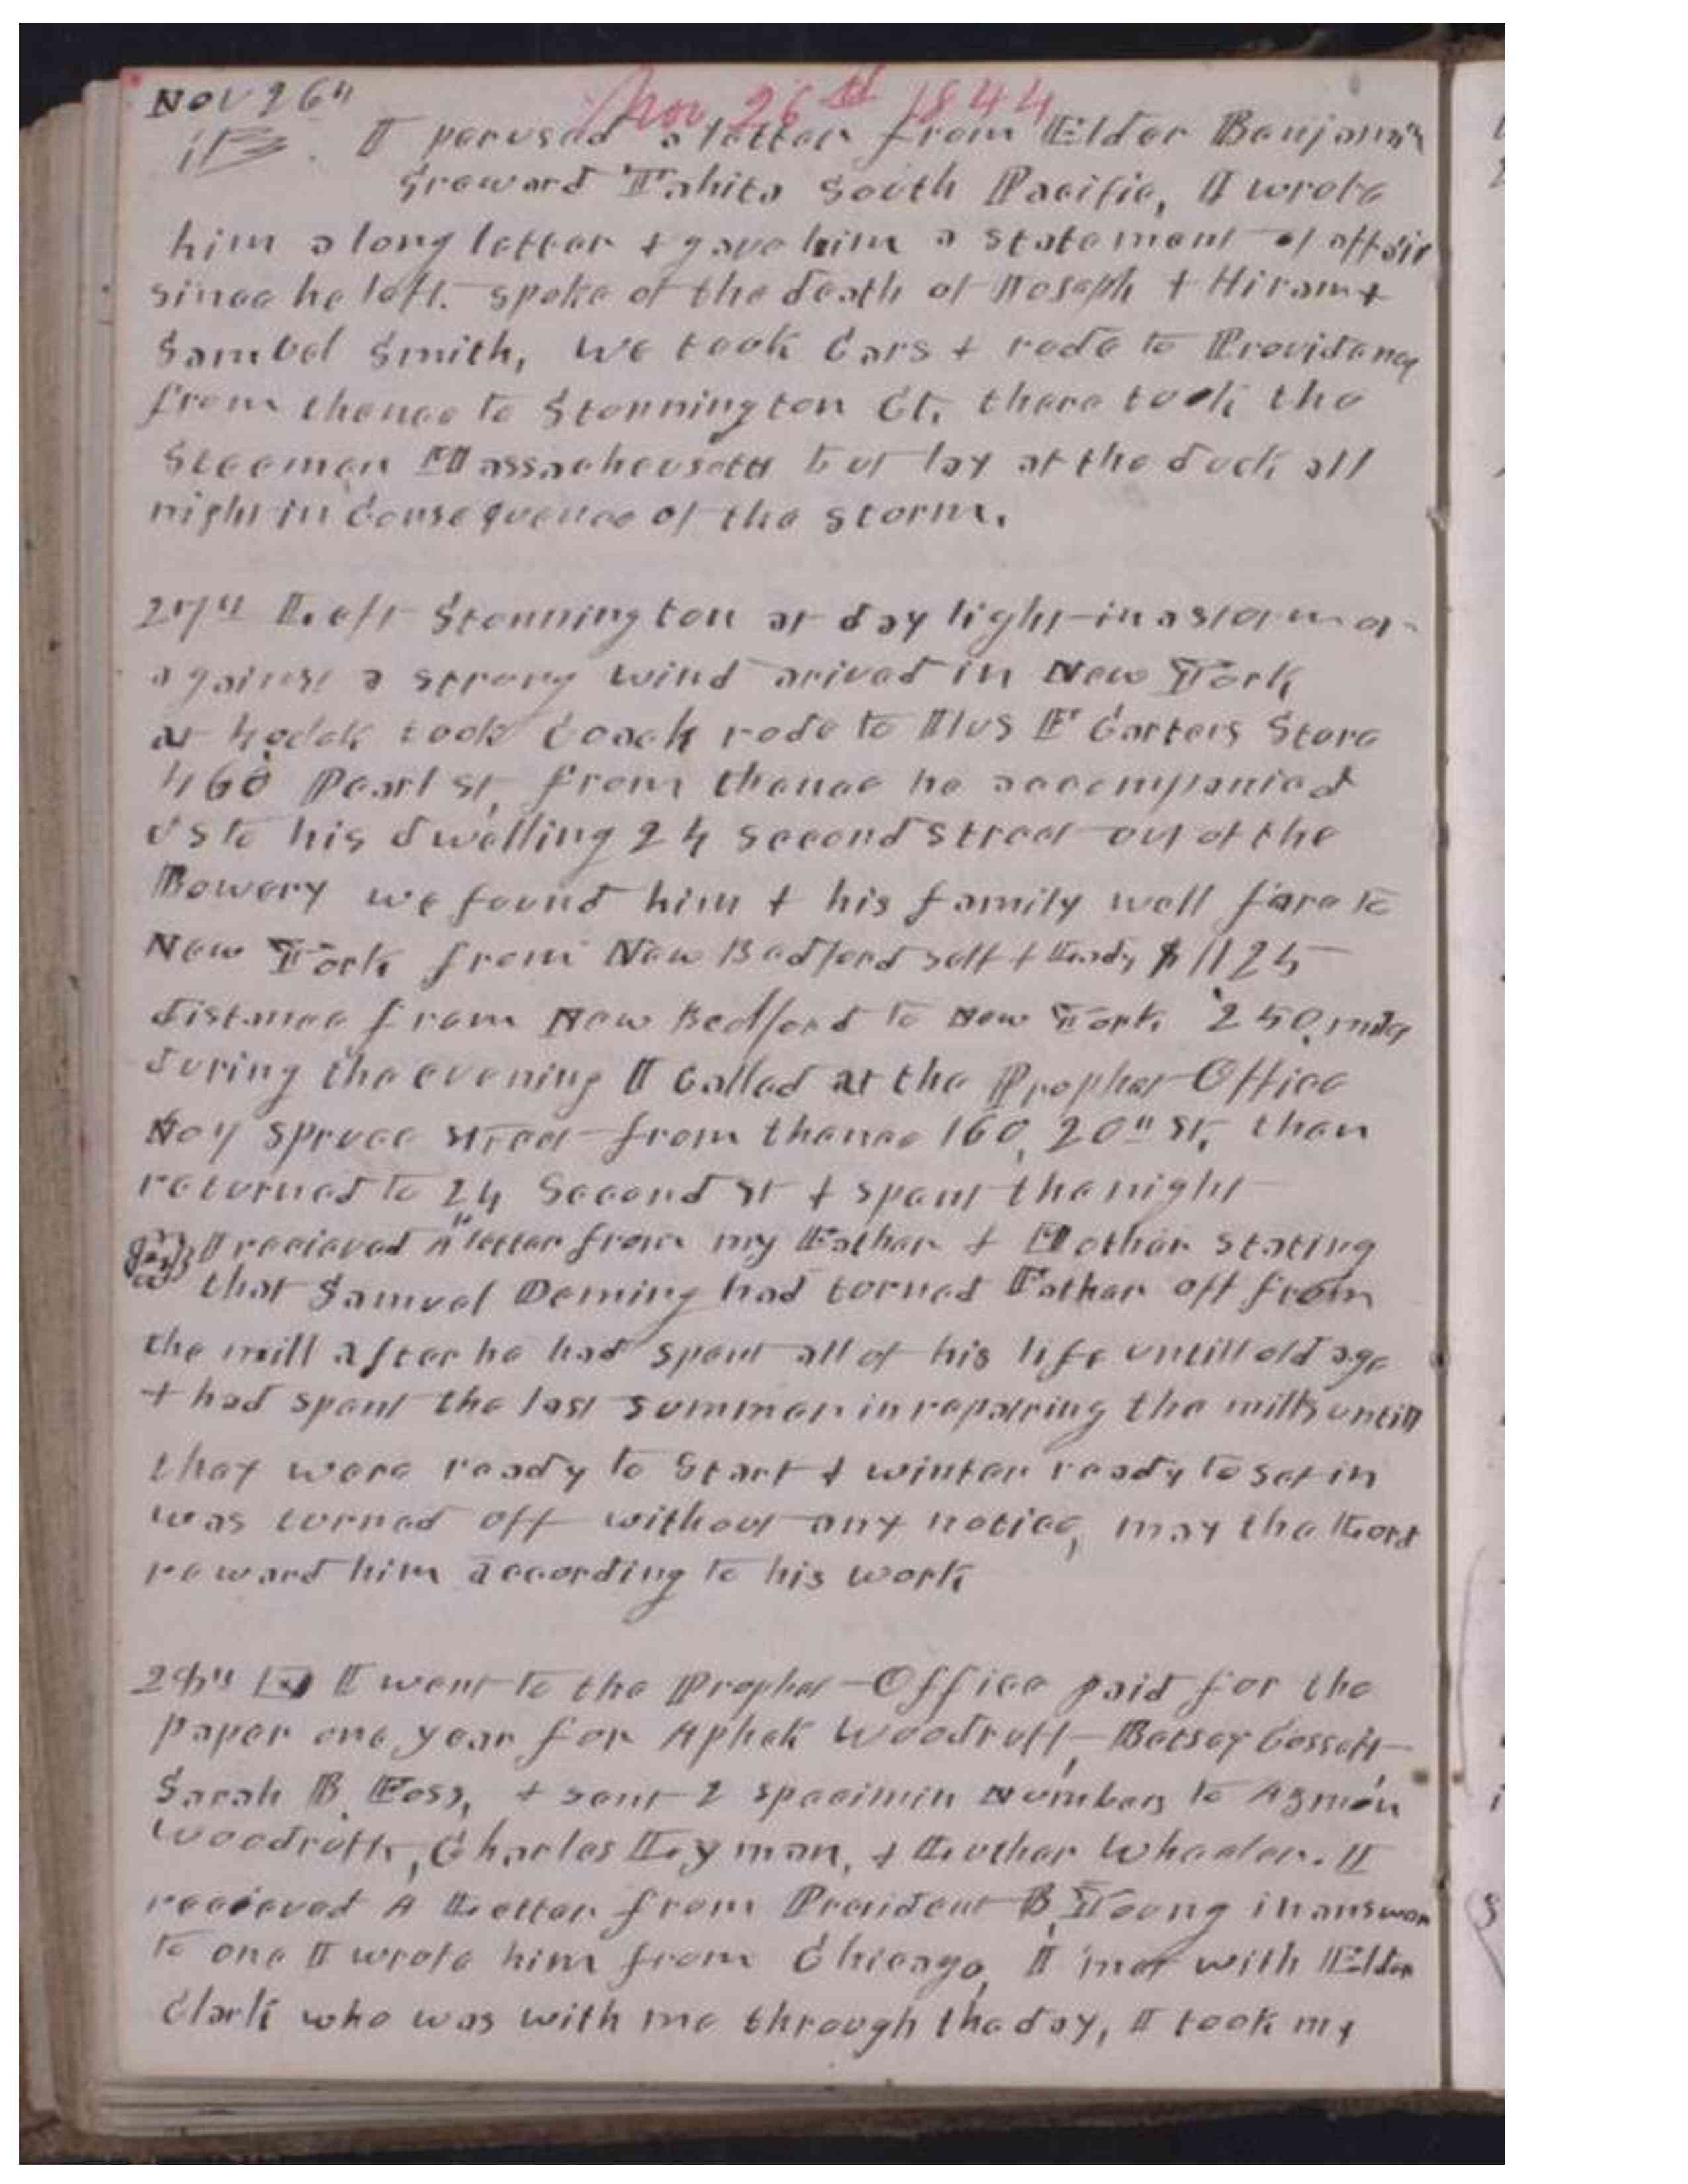 Nov 26th
Nov 26th 1844
I perused a letter from Elder Benjamin
Greward Tahita South Pacific, I wrote
him a long letter & gave him a statement of affair
since he left. spoke of the death of Joseph & Hiram &
Samuel Smith, we took Cars & rode to Providence
from thence to Stonnington Ct, there took the
Steemer Massacheusetts but lay at the dock all
night in Consequence of the storm.
27th Left Stonnington at day light in a storm
against a strong wind arived in New York
at 4 oclok took Coach rode to E Carters Store
460 Pearl st, from thence he accompanied
us to his dwelling 24 Second street out of the
Bowery we found him & his family well fare to
New York from New Bedford self & Lady $11 25
distance from New Bedford to New York 250 miles
during the evening I Called at the Prophet Office
No 7 spruce street from thence 160, 20th St, then
returned to 24 Second st & spent the night
I recieved A letter from my Father & Mother stating
that Samuel Deming had turned Father off from
the mill after he had spent all of his life untill old age
& had spent the last summer in repairing the mills untill
they were ready to Start & winter ready to set in
was turned off without any notice, may the Lord
reward him according to his work
28th I went to the Prophet Office paid for the
paper one year for Aphek Woodruff, Betsey Cossett
Sarah B Foss, & sent 2 specimin Numbers to Azmon
Woodruff, Charles Lyman, & Luther Wheeler. I
recieved A Letter from President B Young in answer
to one I wrote him from Chicago, I met with Elder
Clark who was with me through the day, I took my